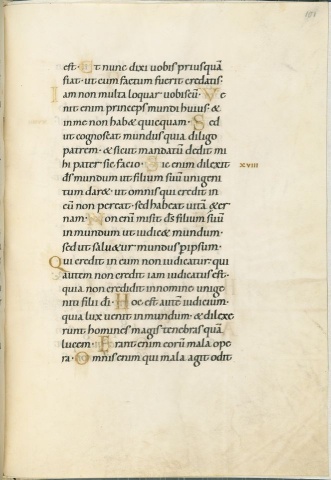 est. Et nunc dixi uobis priusquā
fiat. ut cum factum fuerit credatis.
Iam non multa loquar uobiscū. Ve
nit enim princeps mundi huius. &
in me non hab& quicquam. Sed
ut cognoscat mundus quia diligo
patrem. & sicut mandatū dedit mi
hi pater sic facio. Sic enim dilexit xviii
d̄s mundum ut filium suū unigeni
tum dar&. ut omnis qui credit in
eū non pereat. sed habeat uitā &er
nam. Non enī misit d̄s filium suū
in mundum ut iudic& mundum.
sed ut salu&ur mundus p ipsum.
Qui credit in eum non iudicatur. qui
autem non credit iam iudicatus est.
quia non credidit in nomine unige
niti filii d̄i. Hoc est autē iudicium.
quia lux uenit in mundum. & dilexe
runt homines magis tenebras quā
lucem. Erant enim eorū mala ope
ra. Omnis enim qui mala agit odit